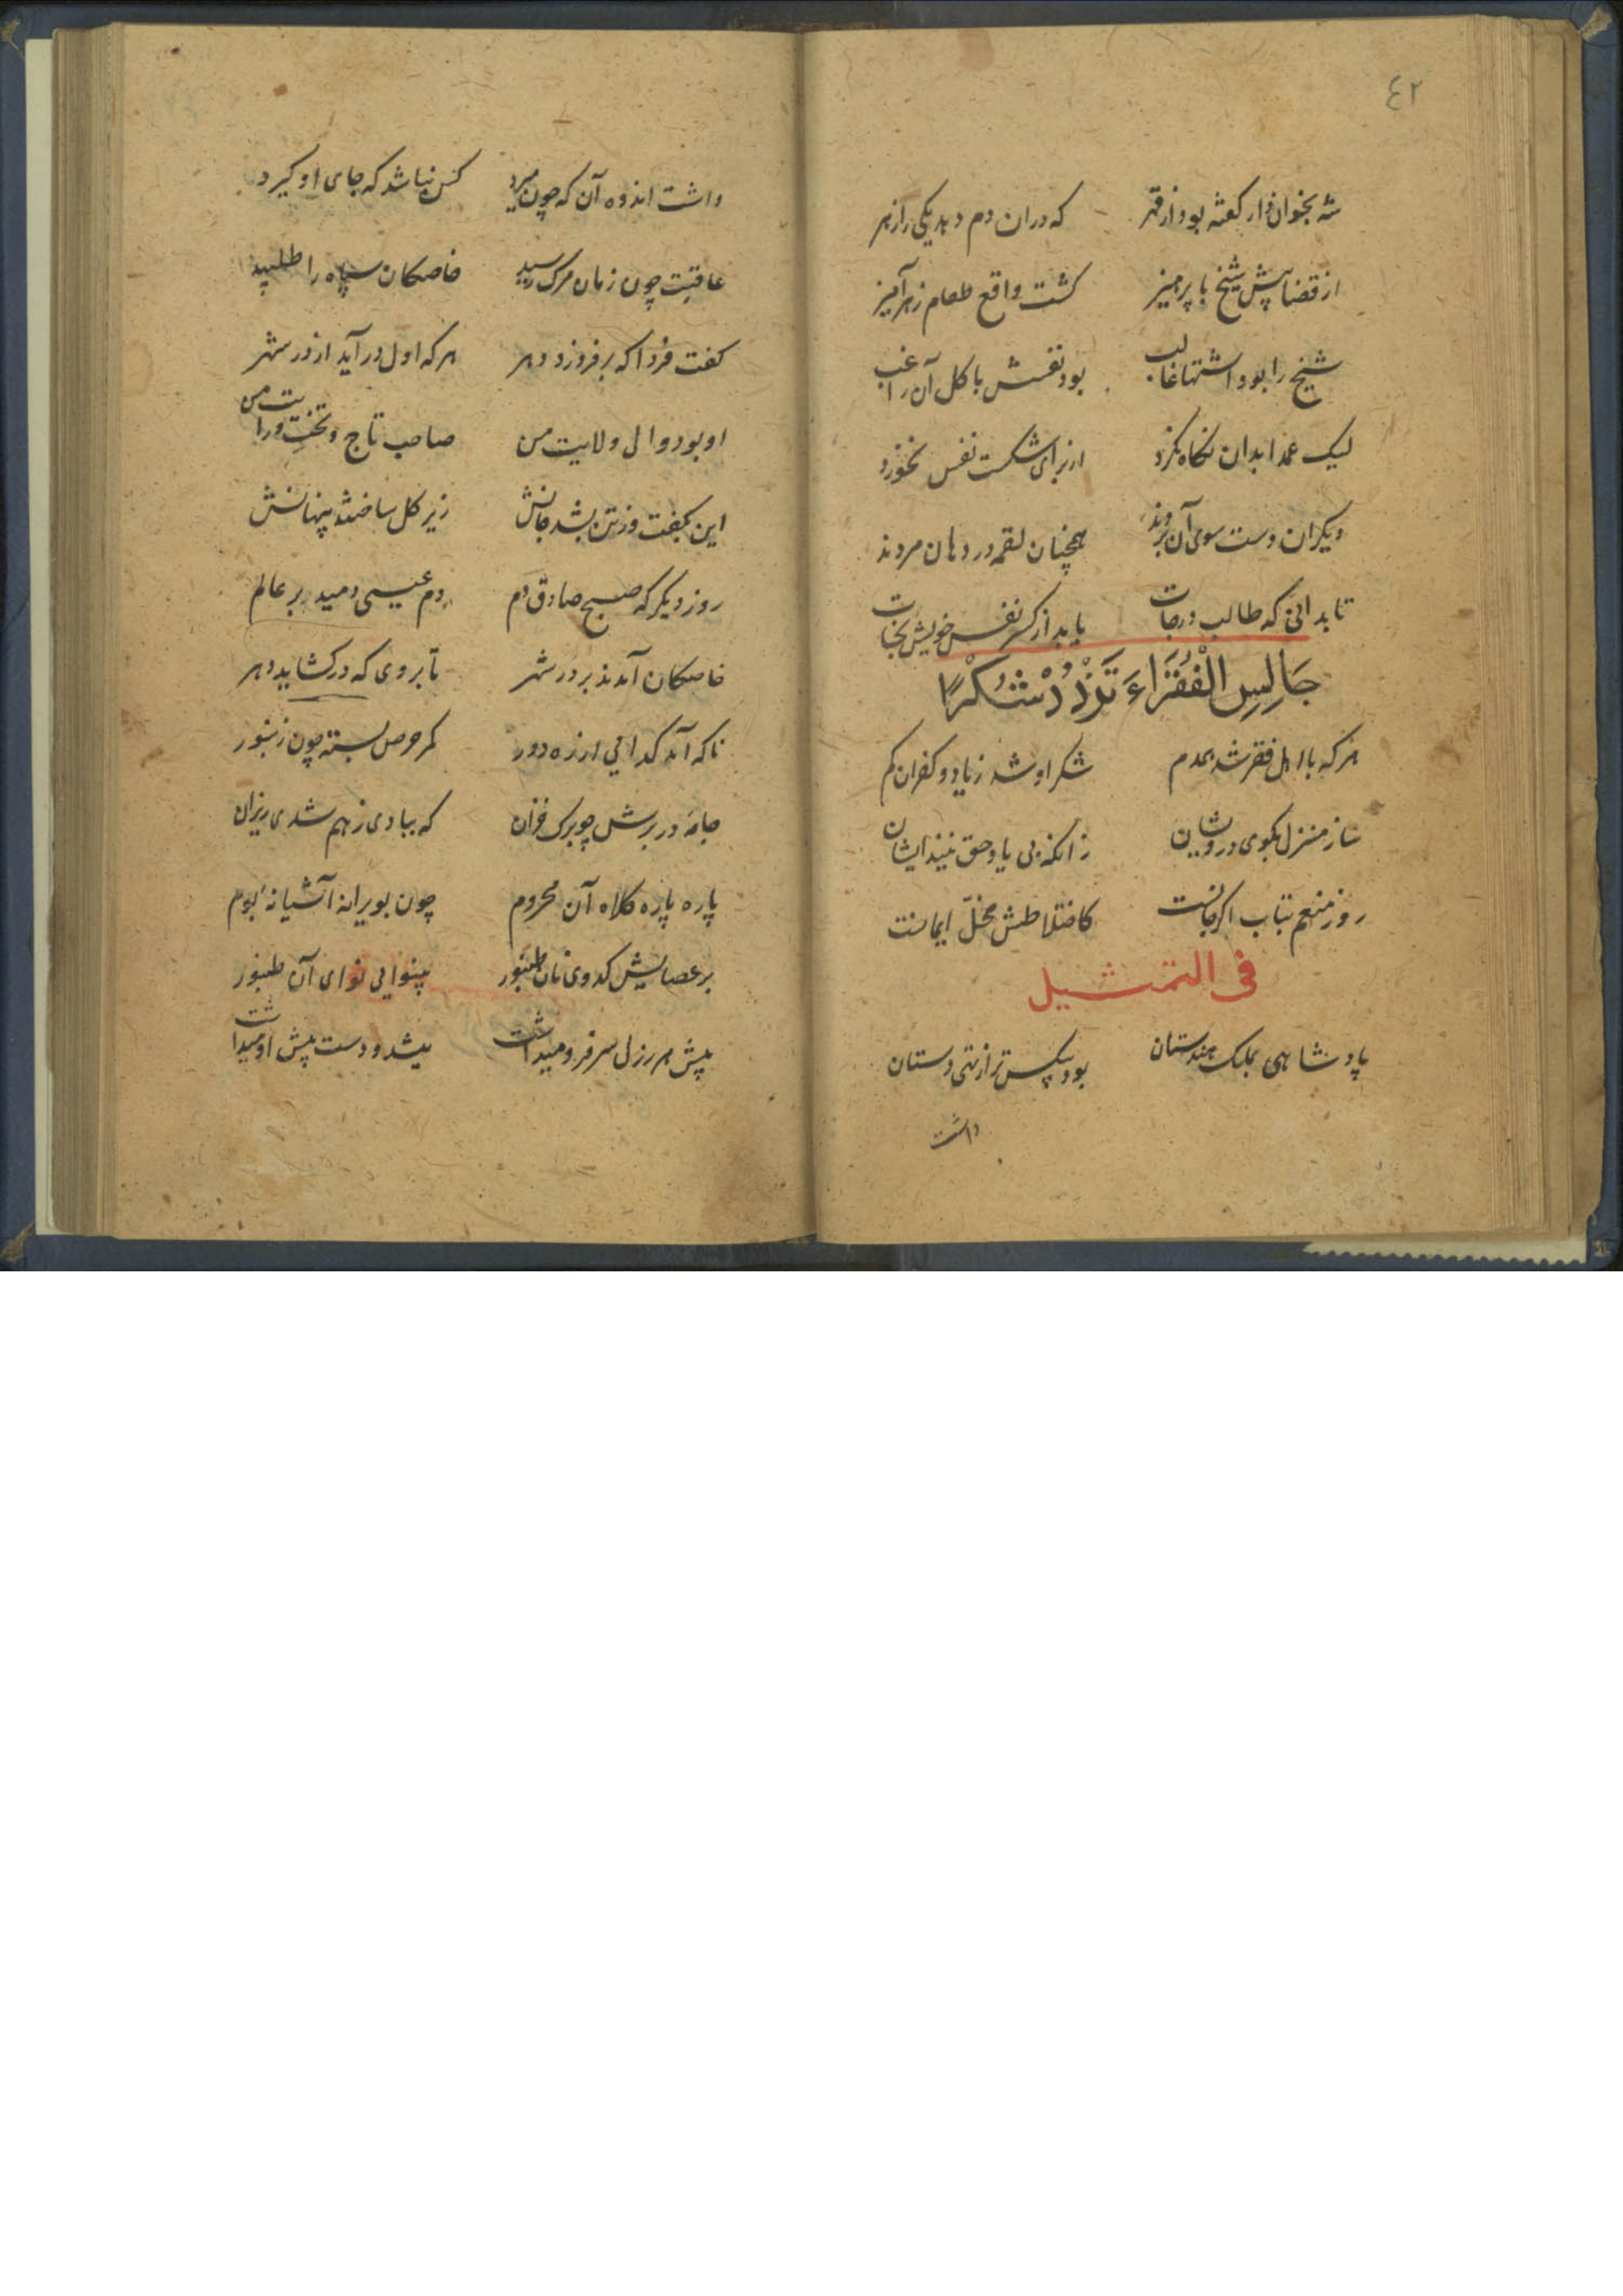 ٤٢
شه بخوان دار گفته بود از قهر که در آن دم دهد یکی را زهر
از قضا پیش شیخ با پرهیز گشت واقع طعام زهرآمیز
شیخ را بود اشتها غالب بود نفسش باکل آن راغب
لیک عمدا بدان نگاه نکرد از برای شکست نفس نخورد
دیگران دست سوی آن بردند همچنان لقمه در دهان مردند
تا بدانی که طالب درجات یابد از کسر نفس خویش نجات
جَالِسِ الْفُقَرَاءَ تَزْدَدْ شُكْرًا
هر که با اهل فقر شد همدم شکر او شد زیاد و کفران کم
ساز منزل بکوی درویشان زانکه بی یاد حق نیند ایشان
رو ز منعم بتاب اگر جانست کاختلاطش مخلّ ایمانست
فی التمثیل
پادشاهی بملک هندستان بود بیکس‌تر از تهی دستان
داشت
داشت اندوه آن که چون میرد کس نباشد که جای او گیرد
عاقبت چون زمان مرگ رسید خاصگان سپاه را طلبید
گفت فردا که برفروزد دهر هر که اول درآید از در شهر
او بود والی ولایت من صاحب تاج و تخت و رایت من
این بگفت و ز تن بشد جانش زیر گل ساختند پنهانش
روز دیگر که صبح صادق دم دم عیسی دمید بر عالم
خاصگان آمدند بر در شهر تا بروی که در گشاید دهر
ناگه آمد گدایی از ره دور کمر حرص بسته چون زنبور
جامه در برش چو برگ خزان که ببادی ز هم شدی ریزان
پاره پاره کلاه آن محروم چون بویرانه آشیانهٔ بوم
بر عصایش کدوی نان طنبور بینوایی نوای آن طنبور
پیش هر رزل سر فرو میداشت میشد و دست پیش او میداشت